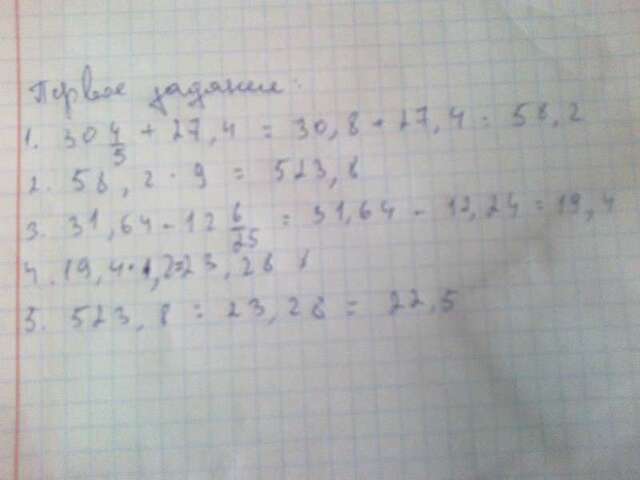 Первое задание:
1. 30 4/5 + 27,4 = 30,8 + 27,4 = 58,2
2. 58,2 · 9 = 523,8
3. 31,64 - 12 6/25 = 31,64 - 12,24 = 19,4
4. 19,4 · 1,2 = 23,28
5. 523,8 : 23,28 = 22,5